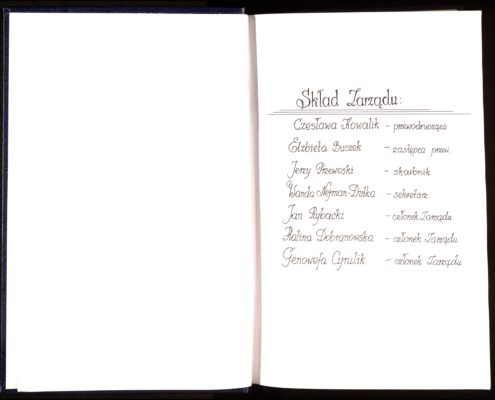 Skład Zarządu:
Czesława Kowalik - przewodnicząca
Elżbieta Buczek - zastępca przew.
Jerzy Przewoski - skarbnik
Wanda Nejman-Dułka - sekretarz
Jan Rybacki - członek Zarządu
Halina Dobranowska - członek Zarządu
Genowefa Cyrulik - członek Zarządu